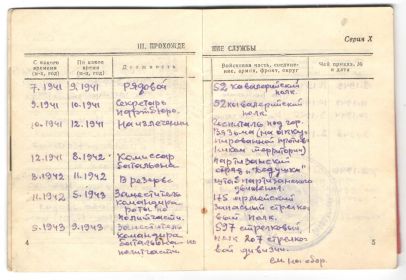 Серия X
III. ПРОХОЖДЕНИЕ СЛУЖБЫ
С какого времени (м-ц, год)
По какое время (м-ц, год)
Должность
Войсковая часть, соединение, армия, фронт, округ
Чей приказ, № и дата
7.1941 9.1941 Рядовой 52 кавалерийский полк.
9.1941 10.1941 Секретарь партбюро 52 кавалерийский полк.
10.1941 12.1941 На излечении Госпиталь под гор. Вязьма (на оккупированной противником территории)
12.1941 8.1942 Комиссар батальона Партизанский отряд "Дедушка"
8.1942 11.1942 В резерве штаб партизанского движения.
11.1942 5.1943 Заместитель командира роты по политчасти. 175 армейский запасный стрелковый полк.
5.1943 9.1943 Заместитель командира батальона по политчасти. 597 стрелковый полк 207 стрелковой дивизии.
см. на обор.
4
5